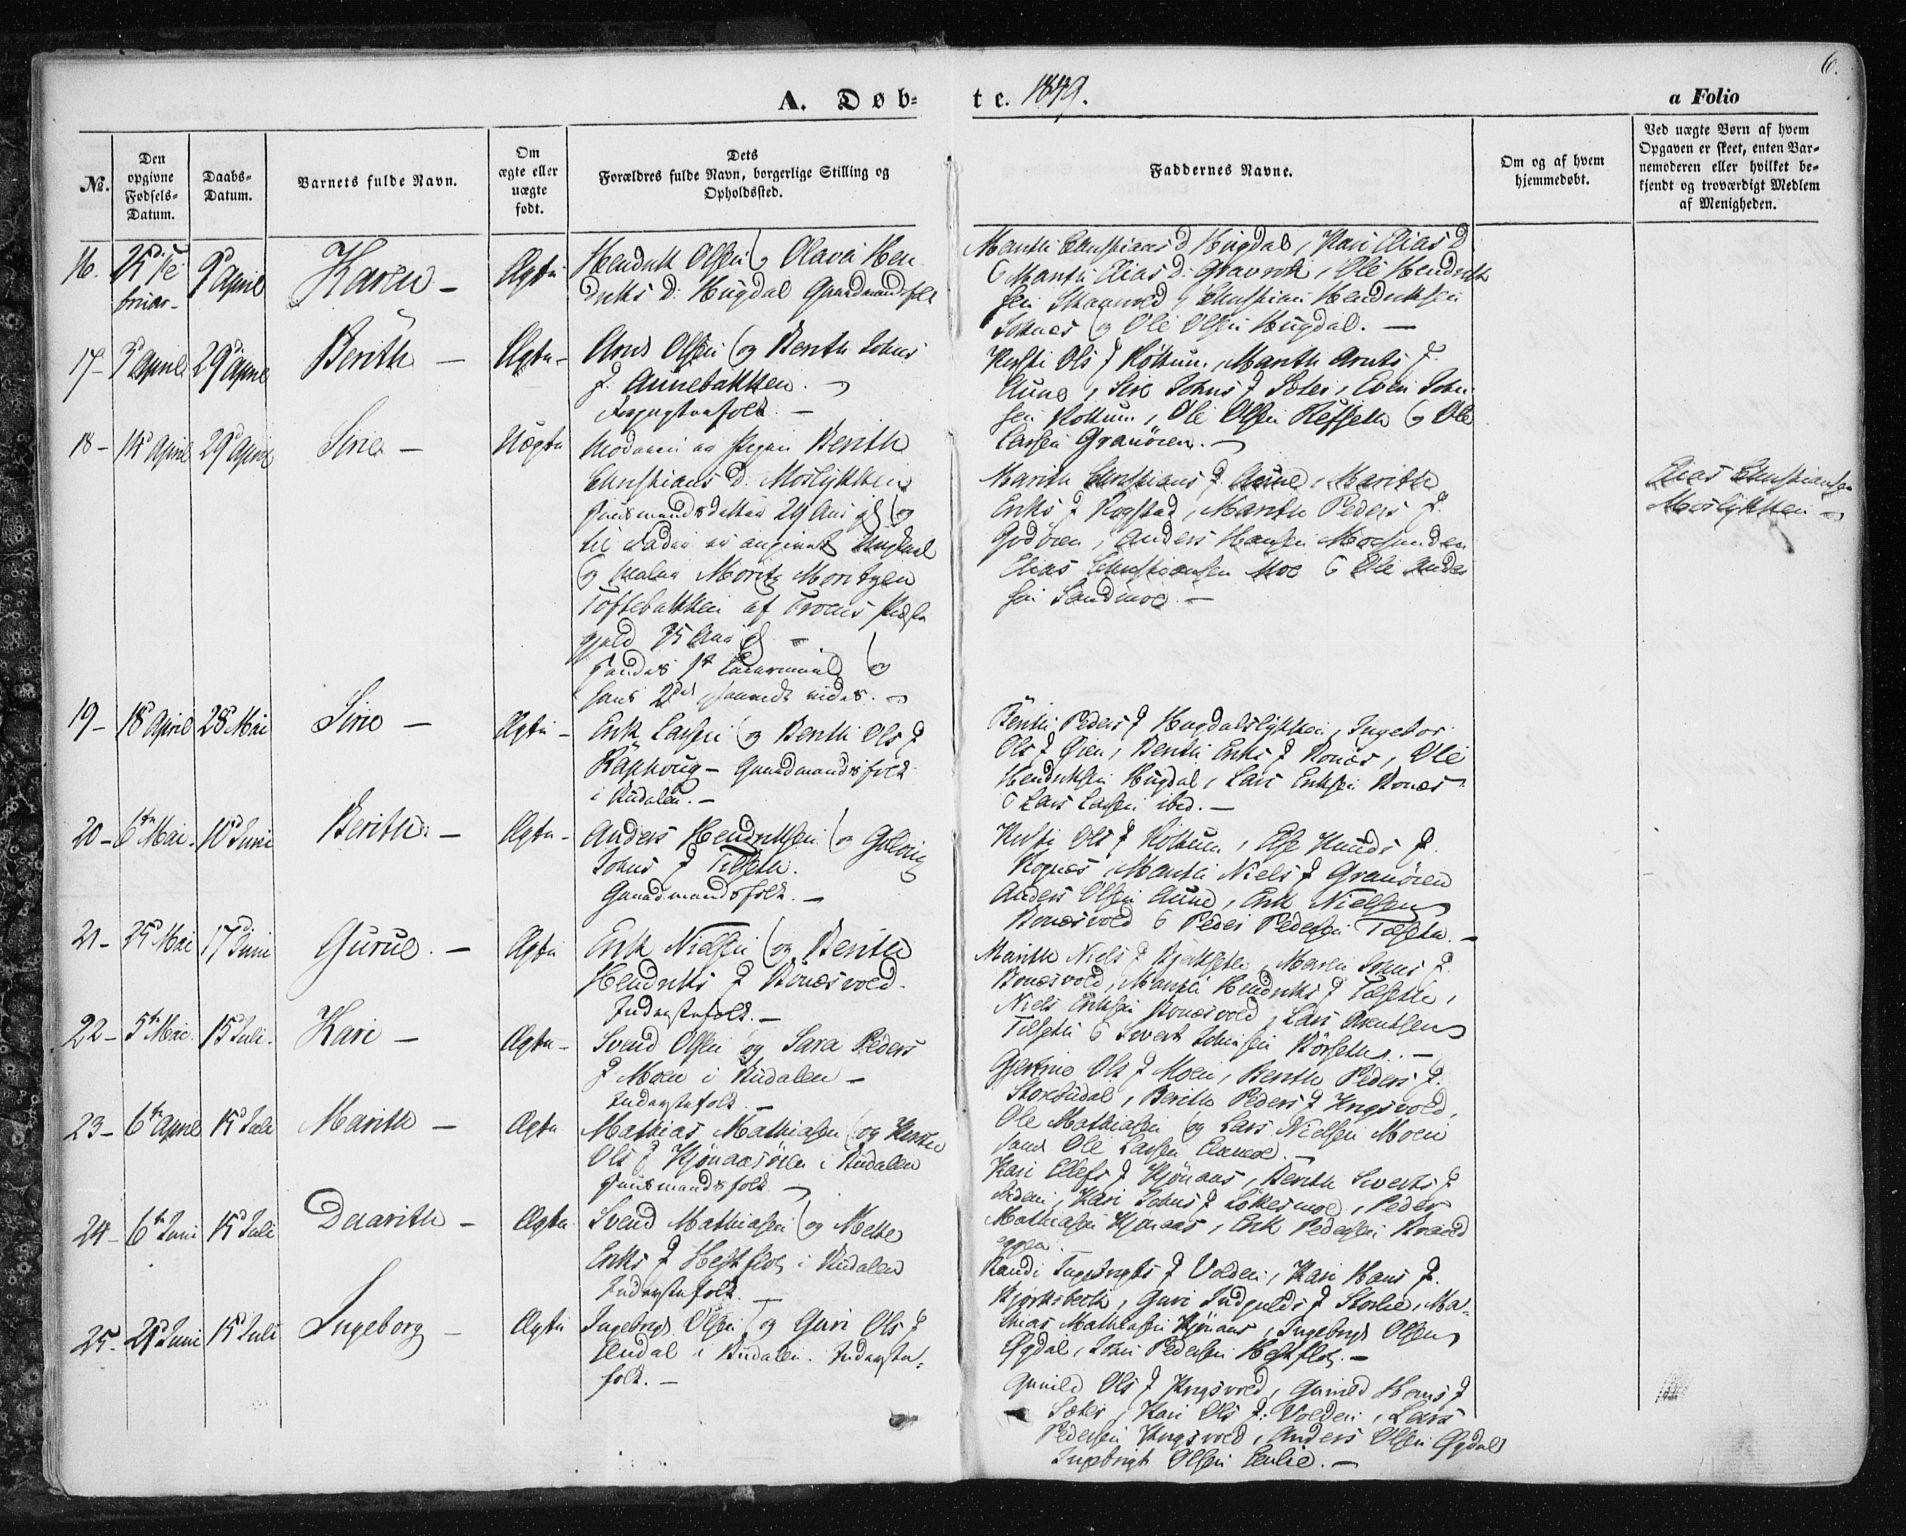 6.
A. Døb-
te. 1849.
a Folio
No.
Den opgivne Fødsels-Datum.
Daabs-Datum.
Barnets fulde Navn.
Om ægte eller uægte født.
Dets Forældres fulde Navn, borgerlige Stilling og Opholdssted.
Faddernes Navne.
Om og af hvem hjemmedøbt.
Ved uægte Børn af hvem Opgaven er skeet, enten Barnemoderen eller hvilket bekjendt og troværdigt Medlem af Menigheden.
16.
Februar
9d April
Karen –
Ægte
Hendrik Olsen og Olava Hen
driks D. Hugdal Gaardmandsfolk
Marith Christians D Hugdal, Kari Elias D
& Marith Elias D. Gravrok, Ole Hendrik
sen, Christian Hendriksen
Soknes og Ole Olsen Hugdal. –
17 –
April
29d April
Berith –
Ægte –
Arnt Olsen og Berith Johns
D. Aunebakken.
folk. –
Kirsti Ols D Kottum, Marith Arnts D.
Aune, Siri Johns D Sæter, Even John
sen Kottum, Ole Olsen Refseth og Ole
Larsen Granøien. –
18 –
15d April
29d April
Siri –
Uægte
Moderen er Pigen Berith
Christians D. Moslykken
Huusmandsdatter 29 Aar gl. og
til Fader er angivet Ungkarl
og Maler Moritz Moritzen
Toftebakken af Præste
gjeld 25 Aar gl. –
Faders 1ste Leiermaal og
hans 2det
Marith Christians D. Aune, Marith
Eriks D Rogstad, Marith Peders D.
Godøien, Anders Hansen
Elias Christiansen Moe & Ole Ander
sen Sandmoe. –
Elias Christiansen
Moslykken –
19 –
18 April
28 Mai
Siri –
Ægte –
Erik Larsen og Berith Ols D
Gaardmandsfolk
i Budalen. –
Berith Peders D Hugdalslykken, Ingebor
Ols D Øien, Berith Eriks D Bonæs, Ole
Hendriksen Hugdal, Lars Eriksen Bonæs
& Lars Larsen ibid. –
20 –
6te Mai.
10d Juni
Berith –
Ægte –
Anders Hendriksen og Golvig
Johns D Tilseth.
Gaardmandsfolk. –
Kirsti Ols D Kottum, Else Knuds D.
Rognæs, Marith Niels D Granøien
Anders Olsen Aune, Erik Nielsen
Bonæsvold & Peder Pedersen Tilseth. –
21 –
25d Mai
17d Juni
Gurue. –
Ægte
Erik Nielsen og Berith
Hendriks D Bonæsvold.
Inderstefolk. –
Marith Niels D, Maren Johns D.
Bonæsvold, Marith Hendriks D Tilseth,
Niels Eriksen Bonæsvold, Lars Bentsen
Tilseth & Sivert Johnsen Børseth. –
22 –
5te Mai.
15d Juli.
Kari –
Ægte –
Svend Olsen og Sara Peders
D Moen i Budalen –
Inderstefolk. –
Gjertrue Ols D Moen, Berith Peders D.
Storbudal, Berith Peders D Kugsvold,
Ole Mathiasen og Lars Nielsen Moen
samt Ole Larsen –
23 –
6te April
15d Juli
Marith –
Ægte
Mathias Mathiasen og Kirsti
Ols D Kjønaasøien i Budalen
Huusmandsfolk –
Kari Ellefs D Kjønaas, Berith Siverts D
Kari Johns D, Peder
Mathiasen Kjønaas, Erik Pedersen
eggen.
24 –
6te Juni
15d Juli
Daarith –
Ægte
Svend Mathiasen og Mette
Eriks D Hestflot i Budalen
Inderstefolk. –
Randi Ingebrigts D Volden, Kari Hans D.
Guri Indgulds D Storlie, Ma-
thias Mathiasen Kjønaas, Ingebrigt Olsen
Øgdal, John Pedersen Hestflot. –
25 –
Juni
15d Juli
Ingeborg –
Ægte
Ingebrigt Olsen og Guri Ols D
Endal i Budalen. Inderste-
folk. –
Gunild Ols D Kugsvold, Gunild Hans D
Sæter, Kari Ols D: Volden, Lars
Pedersen Kugsvold, Anders Olsen Øgdal
Ingebrigt Olsen Enlie. –